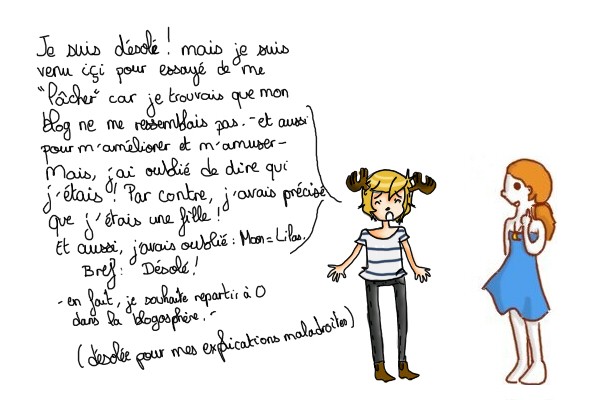 Je suis désolé ! mais je suis
venu içi pour essayé de me
"lâcher" car je trouvais que mon
blog ne me ressemblais pas. - et aussi
pour m'améliorer et m'amuser -
Mais, j'ai oublié de dire qui
j'étais ! Par contre, j'avais précisé
que j'étais une fille !
Et aussi, j'avais oublié : Moon = Lilas.
Bref : Désolé !
- en fait, je souhaite repartir à 0
dans la blogosphère. -
(désolée pour mes explications maladroites)